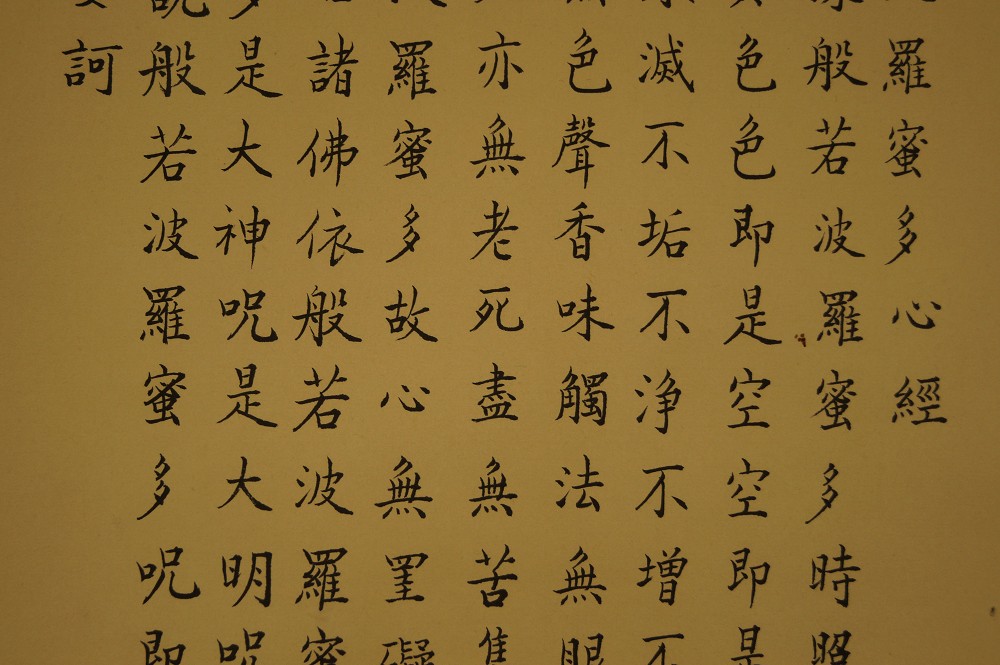 羅蜜多心經
般若波羅蜜多時照
色色即是空空即是
滅不垢不淨不增不
色聲香味觸法無眼
亦無老死盡無苦集
羅蜜多故心無罣礙
諸佛依般若波羅蜜
多是大神呪是大明呪
說般若波羅蜜多呪即
訶